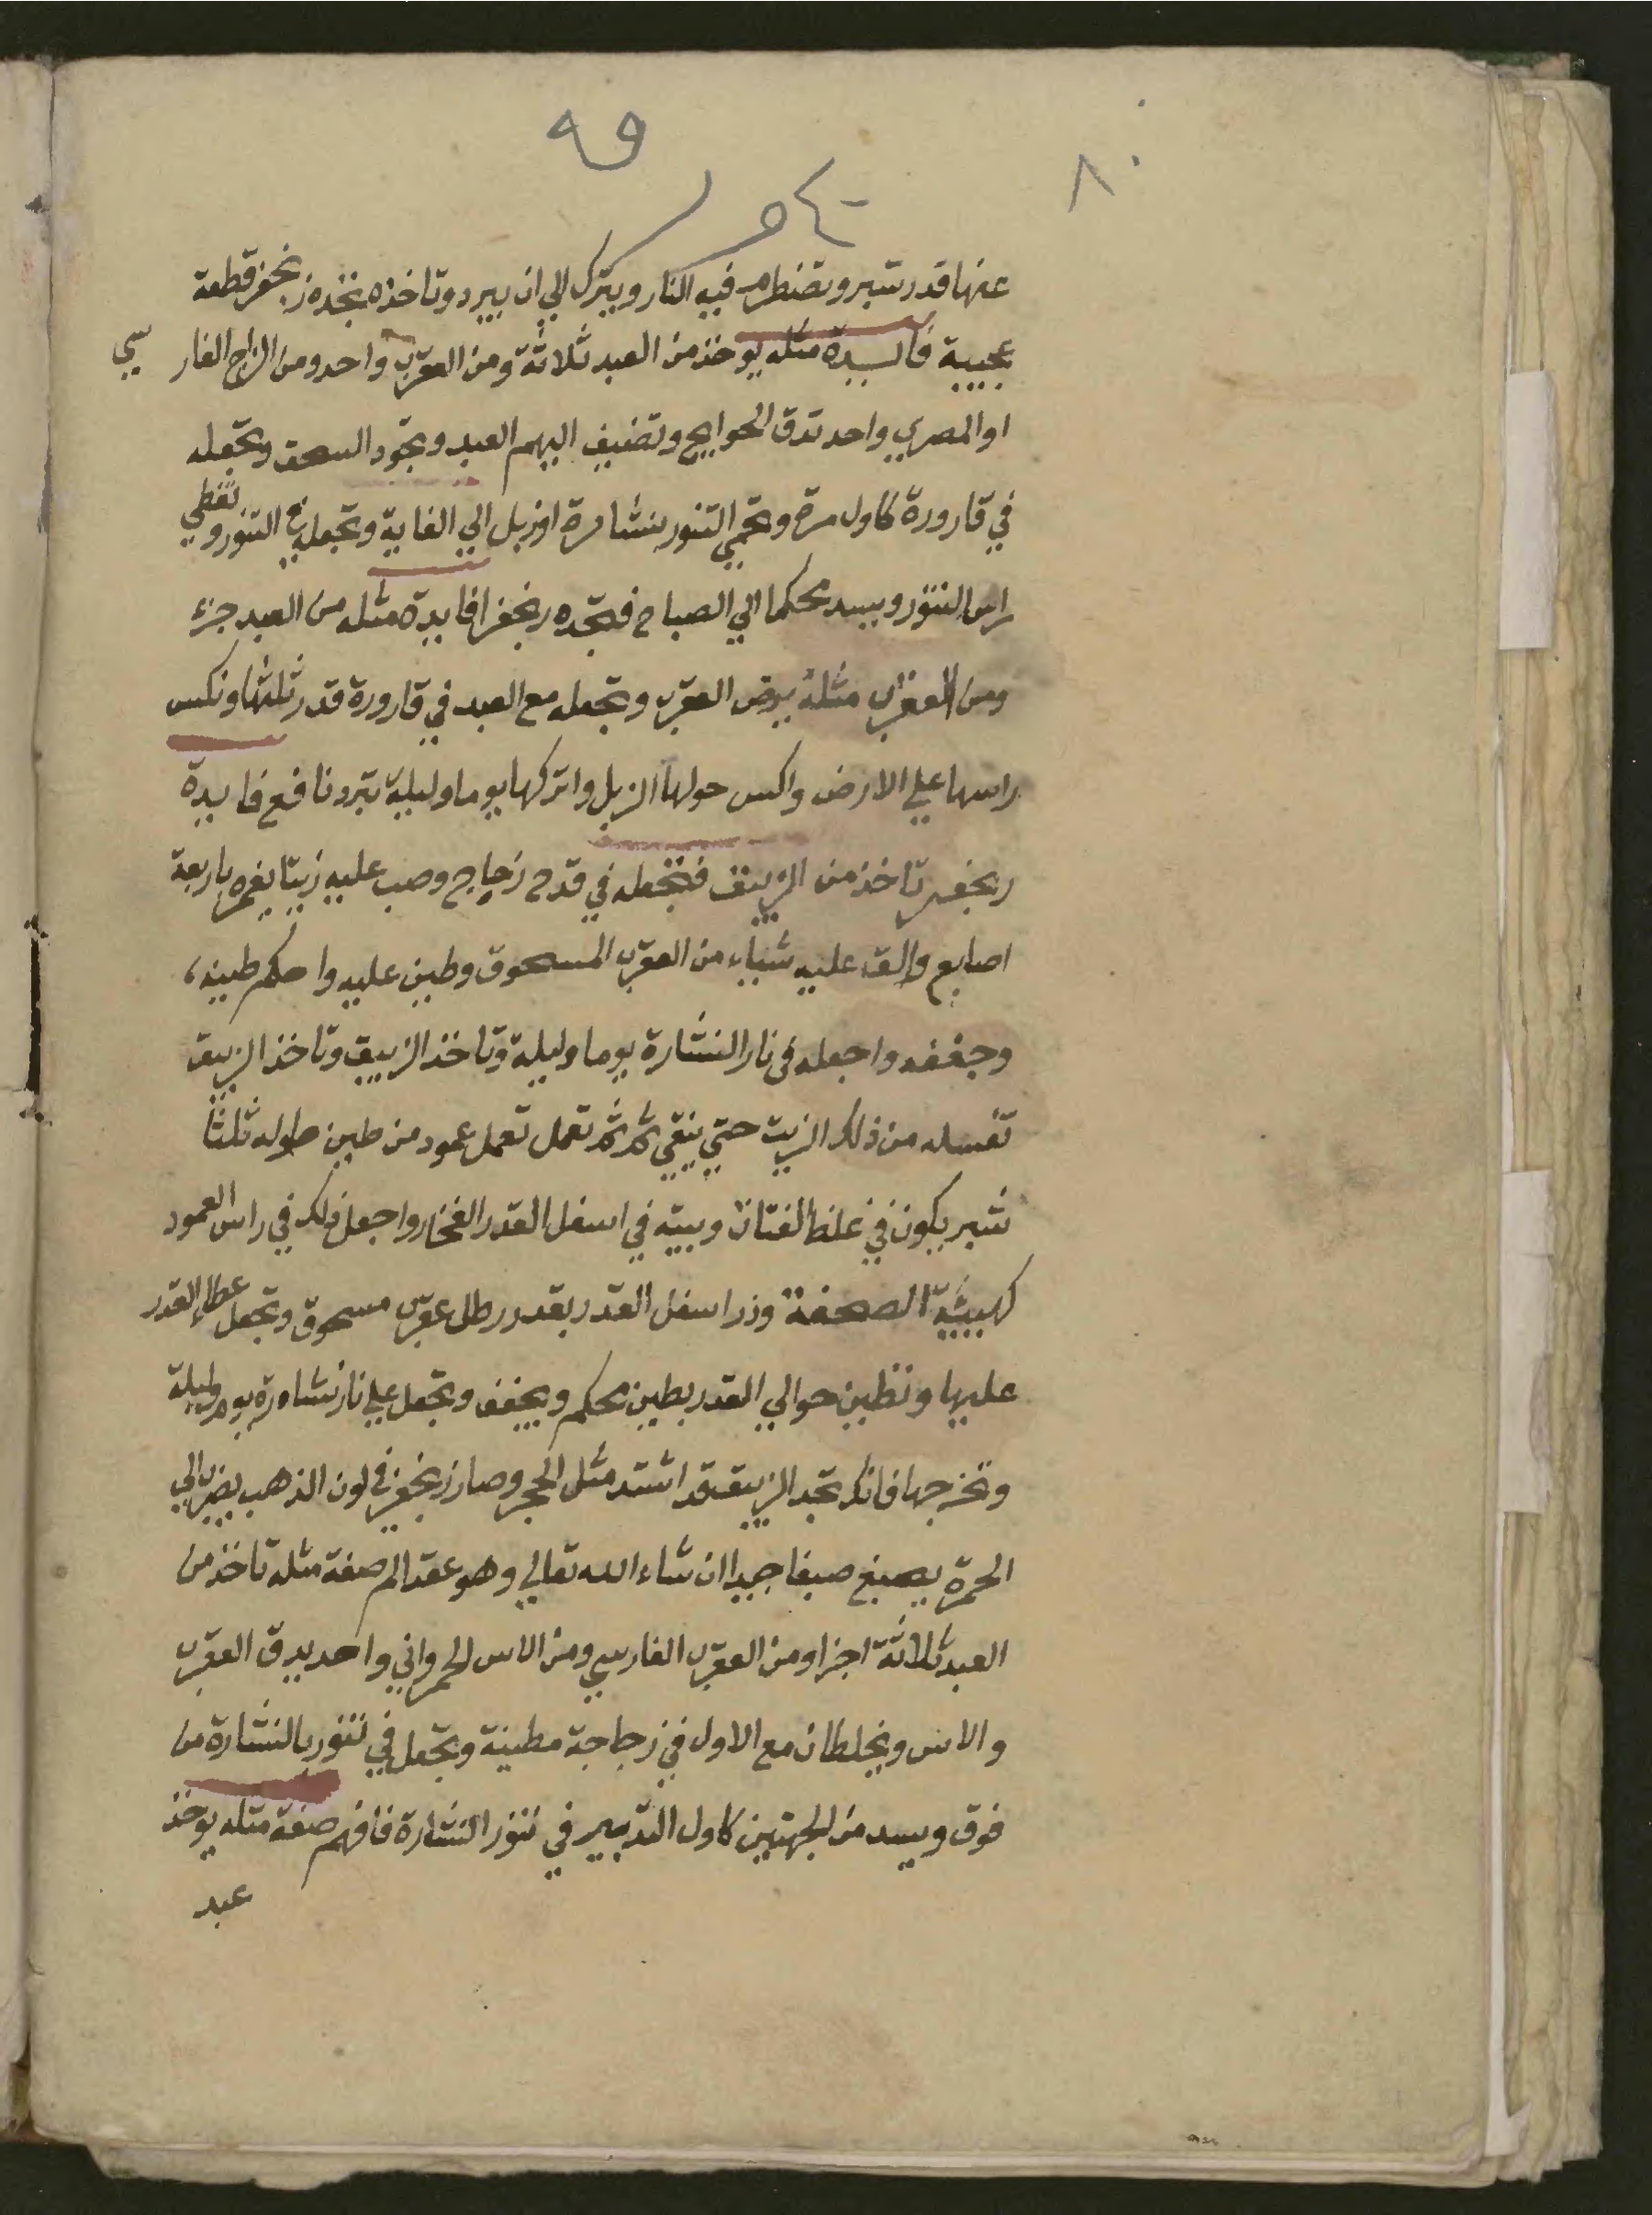 ٨٠
عنها قدر شبر وتضطرم فيه النار ويترك الي ان يبرد وتاخذه تجده زنجفر قطعة
عجيبة فايدة مثله يوخذ من العبد ثلاثة ومن العقرب واحد ومن الزاج الفارسي
او المصري واحد تدق الحوايج وتضيف اليهم العبد وتجود السحق وتجعله
في قارورة كاول مرة وتحمي التنور بنشارة او زبل الي الغاية وتجعله في التنور وتغطي
راس التنور ويسد محكما الي الصباح فتجده زنجفرا فايدة مثله من العبد جزء
ومن العقرب مثله يرض العقرب وتجعله مع العبد في قارورة قدر ثلثها ونكس
راسها علي الارض واكبس حولها الزبل واتركها يوما وليلة تبرد نافع فايدة
زنجفر تاخذ من الزيبق فتجعله في قدح زجاج وصب عليه زيتا يغمره باربعة
اصابع والق عليه شياء من العقرب المسحوق وطين عليه واحكم طينه
وجففه واجعله في نار النشارة يوما وليلة وتاخذ الزيبق وتاخذ الزيبق
تغسله من ذلك الزيت حتي ينقي ثم ثم تعمل تعمل عمود من طين طوله ثلثا
شبر يكون في غلظ الفتات وبيته في اسفل القدر الفخار واجعل ذلك في راس العمود
كهيئة الصحفة وذر اسفل القدر بقدر رطل عقرب مسحوق وتجعل غطا القدر
عليها وتطين حوالي القدر بطين محكم ويجفف وتجعل علي نار نشارة يوم وليلة
وتخرجها فانك تجد الزيبق قد اشتد مثل الحجر وصار زنجفر في لون الذهب يضرب الي
الحمرة يصبغ صبغا جيدا ان شاء الله تعالي وهو عقد الم صفة مثله تاخذ من
العبد ثلاثة اجزا ومن العقرب الفارسي ومن الاس الحمرواني واحد يدق العقرب
والاس ويخلطان مع الاول في زجاجة مطينة وتجعل في تنور بالنشارة من
فوق ويسد من الجهتين كاول التدبير في تنور النشارة فافهم صفة مثله يوخذ
عبد